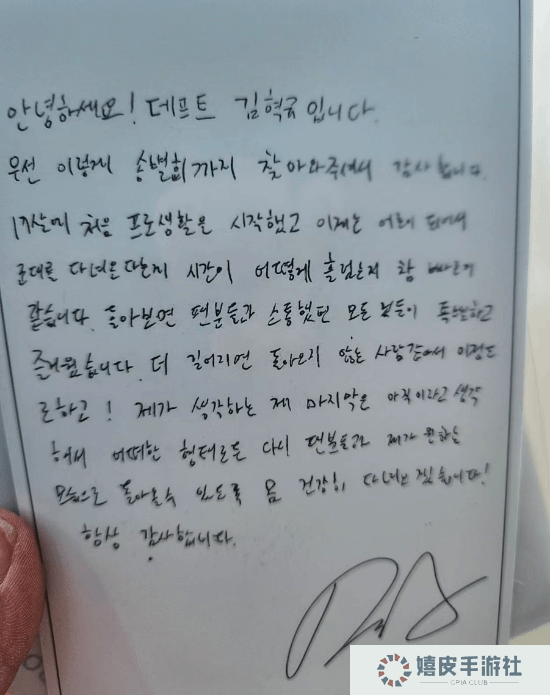 안녕하세요! 데프트 김혁규입니다.
우선 이렇게 송별회까지 찾아와주셔서 감사합니다.
17살에 처음 프로생활을 시작했고 이제는 어른이 되어서
군대를 다녀온다는지 시간이 어떻게 흘렀는지 참 빠르게
같습니다. 돌아보면 팬분들과 소통했던 모든 것들이 특별하고
즐거웠습니다. 더 길어지면 돌아오지 않는 사람같아서 이정도
로하고! 제가 생각하는 제 마지막은 아직이라고 생각
해서 어떠한 형태로든 다시 팬분들과 제가 원하는
모습으로 돌아올수 있도록 몸 건강히 다녀오겠습니다!
항상 감사합니다.
嬉皮手游社
CPIA CLUB